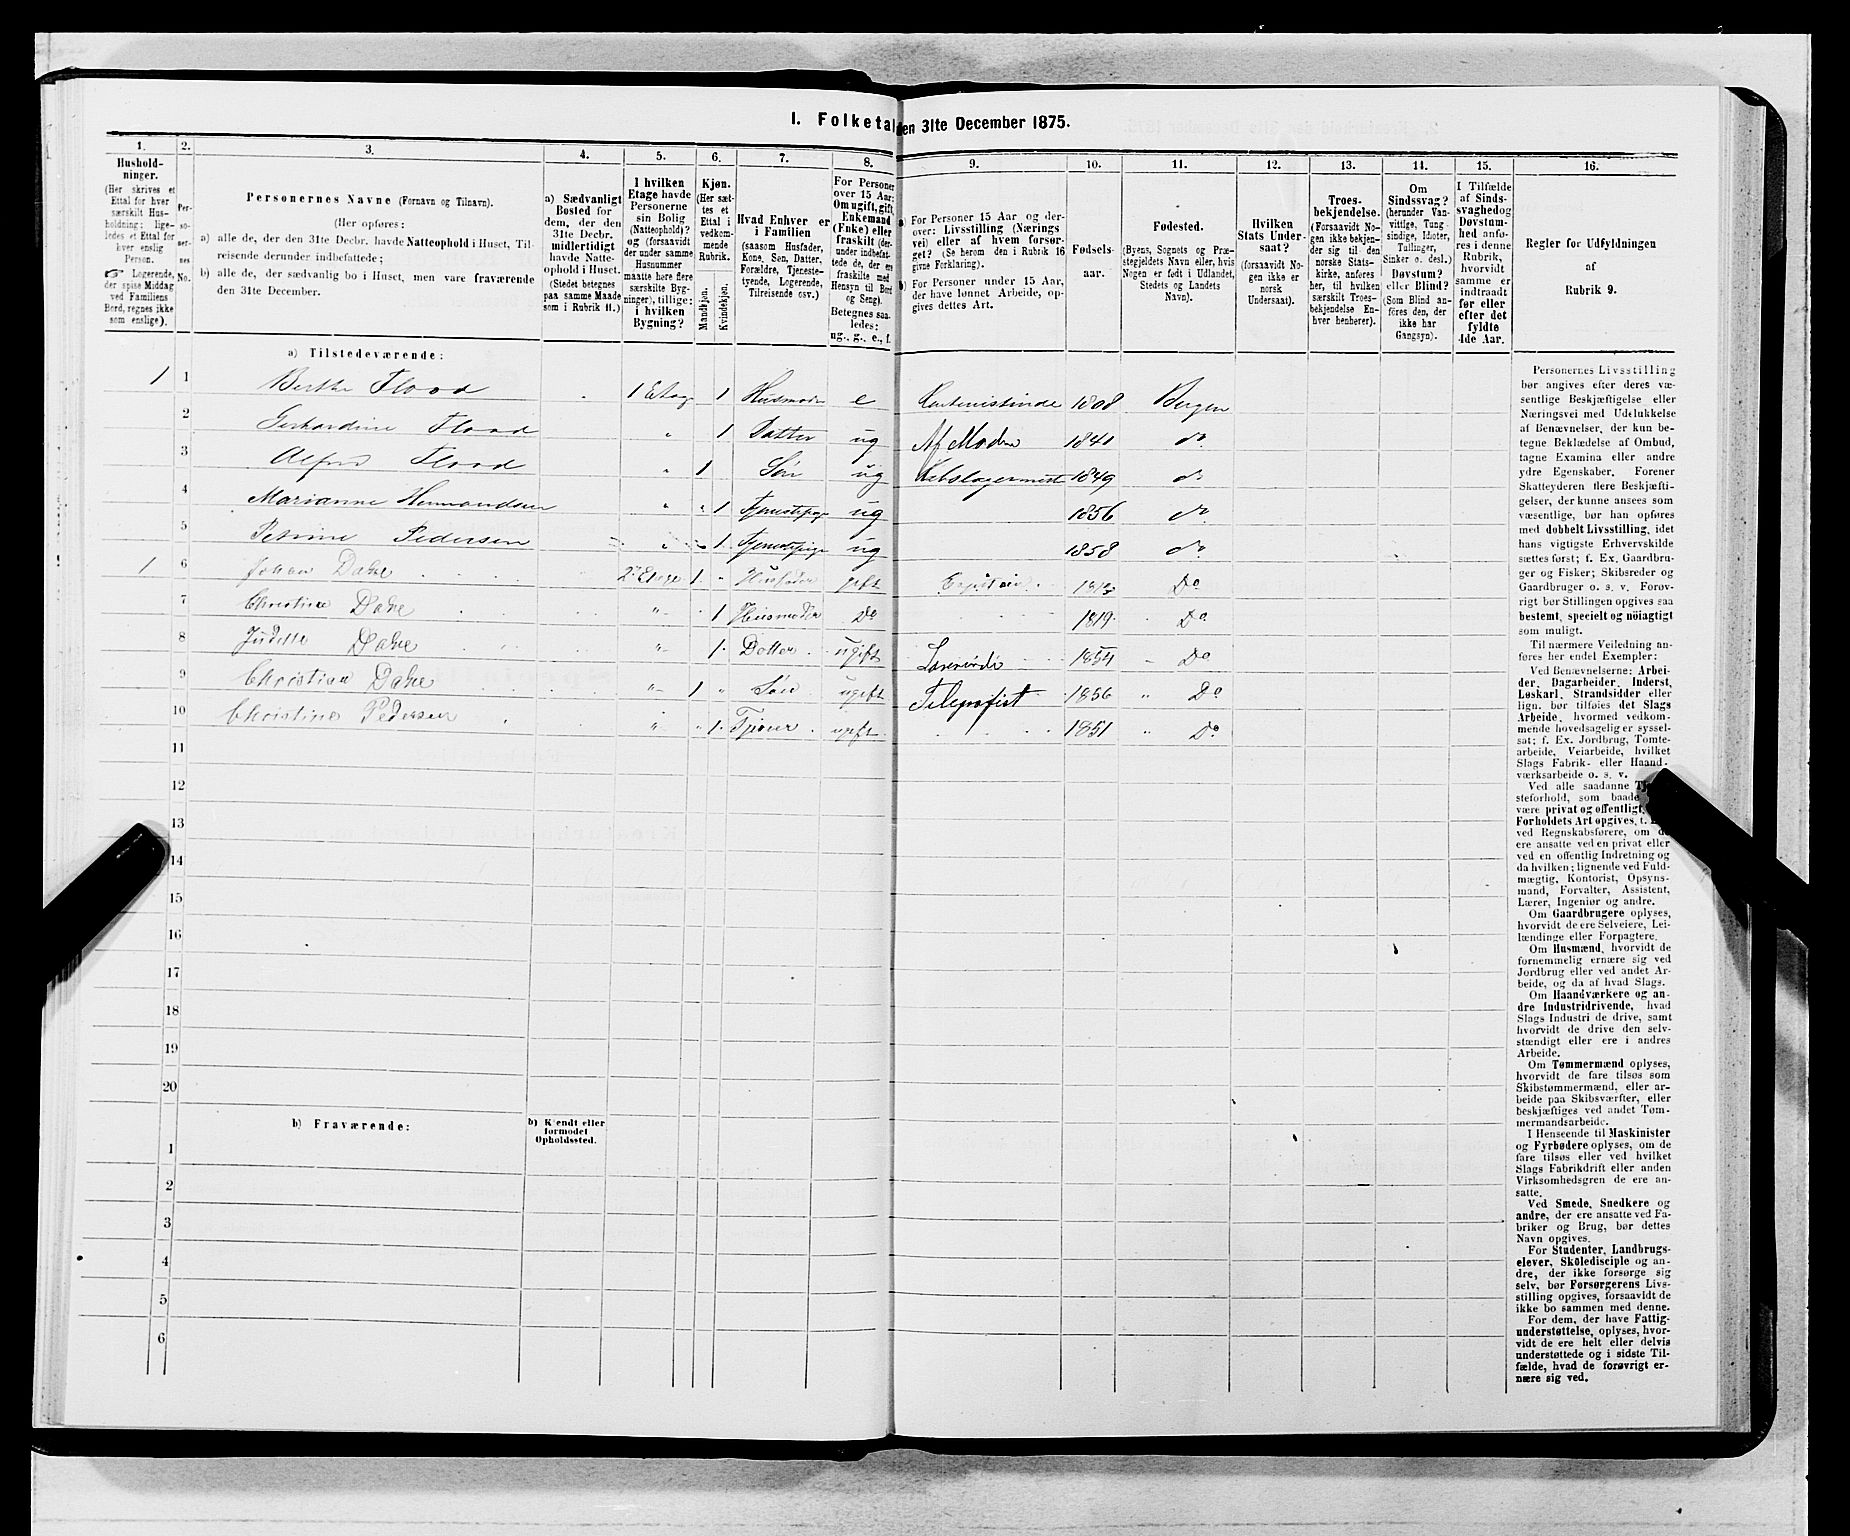 I. Folketal den 31te December 1875.
1. 2. 3. 4. 5. 6. 7. 8. 9. 10. 11. 12. 13. 14. 15. 16.
Hushold-
ninger.
(Her skrives et
Ettal for hver
særskilt Hus-
holdning; lige-
ledes et Ettal for
hver enslig
Person.
☞ Logerende,
der spise Middag
ved Familiens
Bord, regnes ikke
som enslige).
Per-
so-
ner-
nes
No.
Personernes Navne (Fornavn og Tilnavn).
(Her opføres:
a) alle de, der den 31te Decbr. havde Natteophold i Huset, Til-
reisende derunder indbefattede;
b) alle de, der sædvanlig bo i Huset, men vare fraværende
den 31te December.
a) Sædvanligt
Bosted for
dem, der den
31te Decbr.
midlertidigt
havde Natte-
ophold i Huset.
(Stedet betegnes
paa samme Maade
som i Rubrik 11.)
I hvilken
Etage havde
Personerne
sin Bolig
(Natteophold)?
og (forsaavidt
der under samme
Husnummer
maatte høre flere
særskilte Byg-
ninger), tillige:
i hvilken
Bygning?
Kjøn.
(Her sæt-
tes et
Ettal i
vedkom-
mende
Rubrik.
Mandkjøn.
Kvindekjøn.
Hvad Enhver er
i Familien
(saasom Husfader,
Kone, Søn, Datter,
Forældre, Tjeneste-
tyende, Logerende,
Tilreisende osv.)
For Personer
over 15 Aar:
Om ugift, gift,
Enkemand
(Enke) eller
fraskilt (der-
under indbefat-
tede de, der ere
fraskilte med
Hensyn til Bord
og Seng).
Betegnes saa-
ledes:
ug., g., e., f.
a) For Personer 15 Aar og der-
over: Livsstilling (Nærings
vei) eller af hvem forsør-
get? (Se herom den i Rubrik 16
givne Forklaring).
b) For Personer under 15 Aar,
der have lønnet Arbeide, op-
gives dettes Art.
Fødsels-
aar.
Fødested.
(Byens, Sognets og Præ-
stegjeldets Navn eller, hvis
Nogen er født i Udlandet,
Stedets og Landets
Navn).
Hvilken
Stats Under-
saat?
(forsaavidt No-
gen ikke er
norsk
Undersaat).
Troes-
bekjendelse.
(Forsaavidt No-
gen ikke bekjen-
der sig til den
norske Stats-
kirke, anføres
her, til hvilken
særskilt Troes-
bekjendelse En-
hver henhører).
Om
Sindssvag?
(herunder Van-
vittige, Tung-
sindige, Idioter,
Tullinger,
Sinker o. desl.)
Døvstum?
eller Blind?
(Som Blind an-
föres den, der
ikke har
Gangsyn).
I Tilfælde
af Sinds-
svaghed og
Døvstum-
hed anfø-
res i denne
Rubrik,
hvorvidt
samme er
indtraadt
før eller
efter det
fyldte
4de Aar.
Regler for Udfyldningen
af
Rubrik 9.
a) Tilstedeværende:
1 1 Berthe Flood 1 Etage 1 Husmoder e 1808 Bergen
2 Gerhardine Flood " 1 Datter ug Af Moderen 1841 do
3 Alfred Flood " 1 Søn ug Rebslagermest 1849 do
4 Marianne Hermandsen " " 1 Tjenestepige ug 1856 do
5 Petrine Pedersen " " 1 Tjenestepige ug 1858 do
1 6 Johan Dahe 2 Etage 1 " Husfader gift Capitain Do
7 Christine Dahe " 1 Husmoder Do 1819 Do
8 Judithe Dahe " 1 Datter ugift Lærerinde 1854 " Do
9 Christian Dahe " 1 " Søn ugift Telegrafist 1856 " Do
10 Christine Pedersen " " 1 Tjener ugift 1851 " Do
11
12
13
14
15
16
17
18
19
20
b) Fraværende:
b) Kjendt eller
formodet
Opholdssted.
1
2
3
4
5
6
Personernes Livsstilling
bør angives efter deres væ-
sentlige Beskjæftigelse eller
Næringsvei med Udelukkelse
af Benævnelser, der kun be-
tegne Beklædelse af Ombud,
tagne Examina eller andre
ydre Egenskaber. Forener
Skatteyderen flere Beskjæfti-
gelser, der kunne ansees som
væsentlige, bør han opføres
med dobbelt Livsstilling, idet
hans vigtigste Erhvervskilde
sættes først; f. Ex. Gaardbru-
ger og Fisker; Skibsreder og
Gaardbruger o. s. v. Forøv-
rigt bør Stillingen opgives saa
bestemt, specielt og nöiagtigt
som muligt.
Til nærmere Veiledning an-
føres her endel Exempler:
Ved Benævnelserne: Arbei-
der, Dagarbeider, Inderst,
Løskarl, Strandsidder eller
lign. bør tilføies det Slags
Arbeide, hvormed vedkom-
mende hovedsagelig er syssel-
sat; f. Ex. Jordbrug, Tomte-
arbeide, Veiarbeide, hvilket
Slags Fabrik- eller Haand-
værksarbeide o. s. v.
Ved alle saadanne
steforhold, som baade
være privat og offentligt,
Forholdets Art opgives, t.
ved Regnskabsførere, om de
ere ansatte ved en privat eller
ved en offentlig Indretning og
da hvilken; lignende ved Fuld-
mægtig, Kontorist, Opsyns-
mand, Forvalter, Assistent,
Lærer, Ingeniør og andre.
Om Gaardbrugere oplyses,
hvorvidt de ere Selveiere, Lei-
lændinge eller Forpagtere.
Om Husmænd, hvorvidt de
fornemmelig ernære sig ved
Jordbrug eller ved andet Ar-
beide, og da af hvad Slags.
Om Haandværkere og an-
dre Industridrivende, hvad
Slags Industri de drive, samt
hvorvidt de drive den selv-
stændigt eller ere i andres
Arbeide.
Om Tømmermænd oplyses,
hvorvidt de fare tilsøs som
Skibstømmermænd, eller ar-
beide paa Skibsværfter, eller
beskjæftiges ved andet Tøm-
mermandsarbeide.
I Henseende til Maskinister
og Fyrbødere oplyses, om de
fare tilsøs eller ved hvilket
Slags Fabrikdrift eller anden
Virksomhedsgren de ere an-
satte.
Ved Smede, Snedkere og
andre, der ere ansatte ved Fa-
briker og Brug, bør dettes
Navn opgives.
For Studenter, Landbrugs-
elever, Skôledisciple og an-
dre, der ikke forsørge sig
selv, bør Forsørgerens Livs-
stilling opgives, forsaavidt de
ikke bo sammen med denne.
For dem, der have Fattig-
understøttelse, oplyses, hvor-
vidt de ere helt eller delvis
understøttede og i sidste Til-
fælde, hvad de forøvrigt er-
nære sig ved.